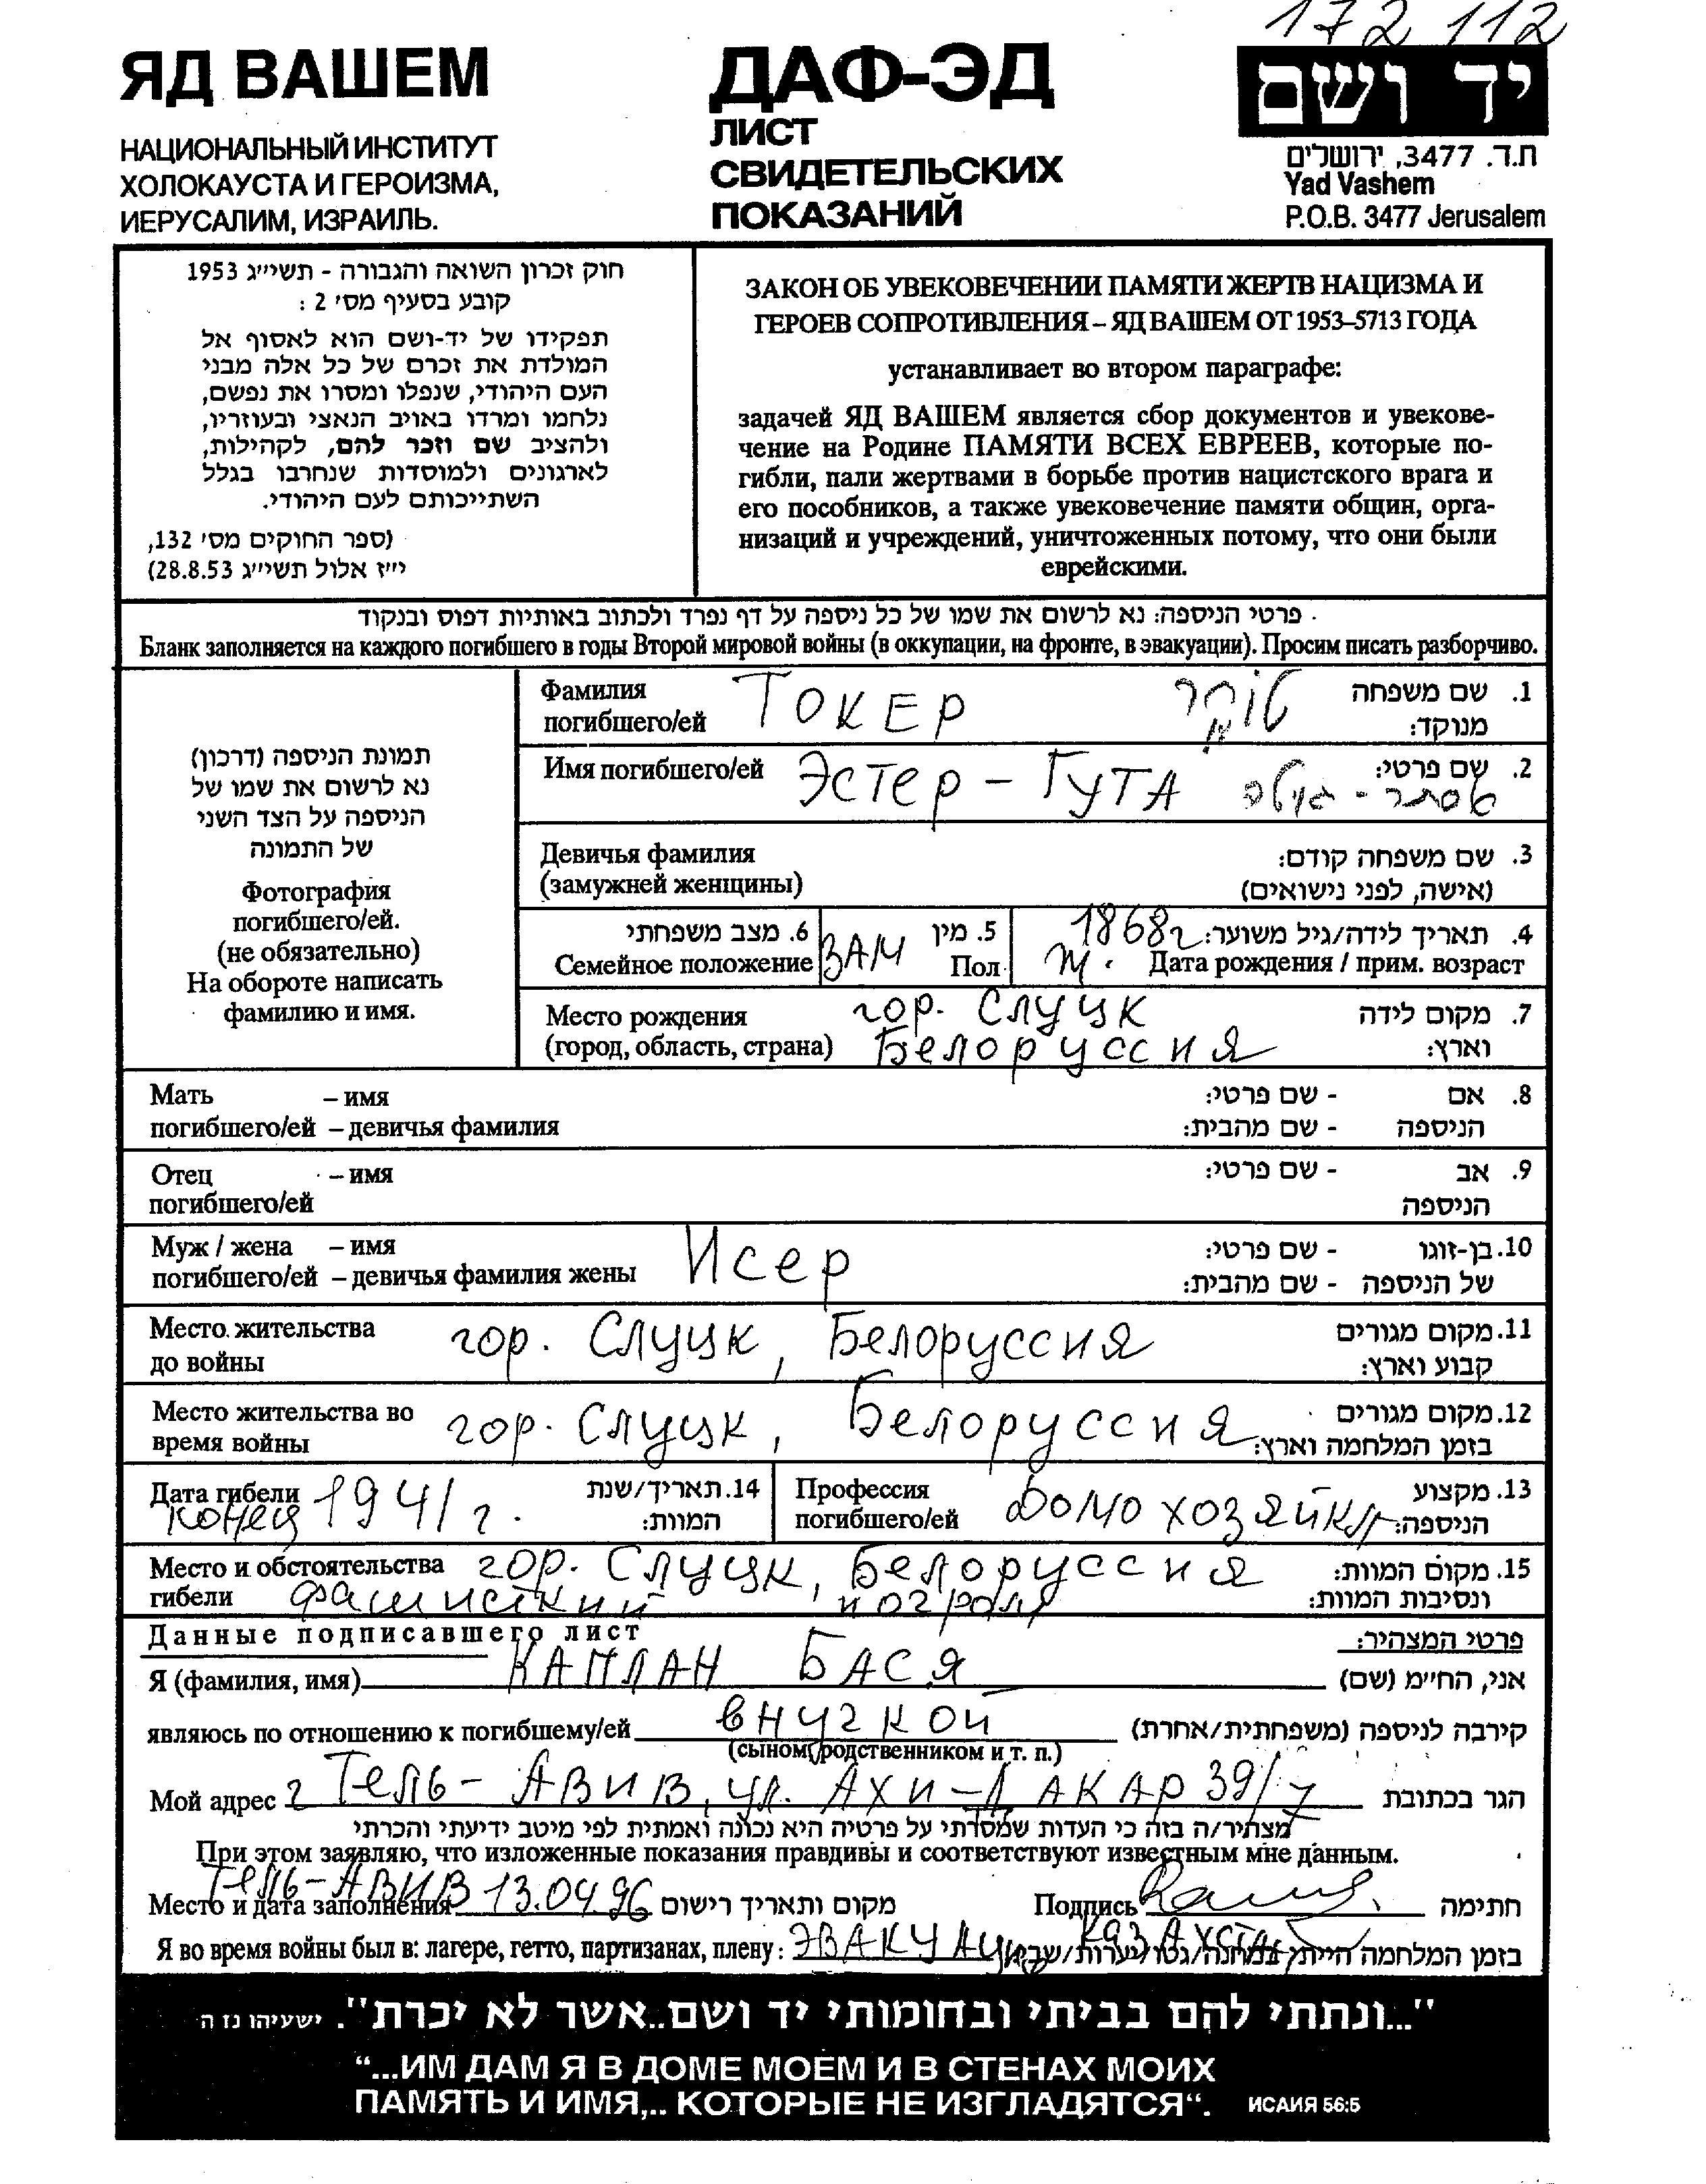 172 112
ЯД ВАШЕМ
НАЦИОНАЛЬНЫЙ ИНСТИТУТ
ХОЛОКАУСТА И ГЕРОИЗМА,
ИЕРУСАЛИМ, ИЗРАИЛЬ.
ДАФ-ЭД
ЛИСТ
СВИДЕТЕЛЬСКИХ
ПОКАЗАНИЙ
יד ושם
ת.ד. 3477, ירושלים
Yad Vashem
P.O.B. 3477 Jerusalem
חוק זכרון השואה והגבורה - תשי״ג 1953
קובע בסעיף מס׳ 2 :
תפקידו של יד-ושם הוא לאסוף אל
המולדת את זכרם של כל אלה מבני
העם היהודי, שנפלו ומסרו את נפשם,
נלחמו ומרדו באויב הנאצי ובעוזריו,
ולהציב שם וזכר להם, לקהילות,
לארגונים ולמוסדות שנחרבו בגלל
השתייכותם לעם היהודי.
(ספר החוקים מס׳ 132,
י״ז אלול תשי״ג 28.8.53)
ЗАКОН ОБ УВЕКОВЕЧЕНИИ ПАМЯТИ ЖЕРТВ НАЦИЗМА И
ГЕРОЕВ СОПРОТИВЛЕНИЯ – ЯД ВАШЕМ ОТ 1953–5713 ГОДА
устанавливает во втором параграфе:
задачей ЯД ВАШЕМ является сбор документов и увекове-
чение на Родине ПАМЯТИ ВСЕХ ЕВРЕЕВ, которые по-
гибли, пали жертвами в борьбе против нацистского врага и
его пособников, а также увековечение памяти общин, орга-
низаций и учреждений, уничтоженных потому, что они были
еврейскими.
פרטי הניספה: נא לרשום את שמו של כל ניספה על דף נפרד ולכתוב באותיות דפוס ובנקוד
Бланк заполняется на каждого погибшего в годы Второй мировой войны (в оккупации, на фронте, в эвакуации). Просим писать разборчиво.
תמונת הניספה (דרכון)
נא לרשום את שמו של
הניספה על הצד השני
של התמונה
Фотография
погибшего/ей.
(не обязательно)
На обороте написать
фамилию и имя.
Фамилия ТОКЕР טוקר 1. שם משפחה
погибшего/ей מנוקד:
Имя погибшего/ей ЭСТЕР – ГУТА אסתר - גוטה 2. שם פרטי:
Девичья фамилия 3. שם משפחה קודם:
(замужней женщины) (אישה, לפני נישואים)
6. מצב משפחתי ЗАМ 5. מין 1868г 4. תאריך לידה/גיל משוער:
Семейное положение Пол Ж. Дата рождения / прим. возраст
Место рождения гор. Слуцк 7. מקום לידה
(город, область, страна) Белоруссия וארץ:
Мать – имя 8. אם - שם פרטי:
погибшего/ей – девичья фамилия הניספה - שם מהבית:
Отец – имя 9. אב - שם פרטי:
погибшего/ей הניספה
Муж / жена – имя Исер 10. בן-זוגו - שם פרטי:
погибшего/ей – девичья фамилия жены של הניספה - שם מהבית:
Место жительства гор. Слуцк, Белоруссия 11. מקום מגורים
до войны קבוע וארץ:
Место жительства во гор. Слуцк, Белоруссия 12. מקום מגורים
время войны בזמן המלחמה וארץ:
Дата гибели 1941 г. 14. תאריך/שנת
конец המוות:
Профессия домохозяйка 13. מקצוע
погибшего/ей הניספה:
Место и обстоятельства гор. Слуцк, Белоруссия 15. מקום המוות:
гибели ונסיבות המוות:
Данные подписавшего лист פרטי המצהיר:
Я (фамилия, имя) КАПЛАН БАСЯ אני, הח״מ (שם)
являюсь по отношению к погибшему/ей внучкой קירבה לניספה (משפחתית/אחרת)
(сыном, родственником и т. п.)
Мой адрес г Тель-Авив, ул. Ахи-Дакар 39/7 הגר בכתובת
מצהיר/ה בזה כי העדות שמסרתי על פרטיה היא נכונה ואמתית לפי מיטב ידיעתי והכרתי
При этом заявляю, что изложенные показания правдивы и соответствуют известным мне данным.
Тель-Авив 13.04.96
Место и дата заполнения מקום ותאריך רישום Подпись חתימה
Я во время войны был в: лагере, гетто, партизанах, плену: בזמן המלחמה הייתי במחנה/גטו/יערות/שבי
"...ונתתי להם בביתי ובחומותי יד ושם..אשר לא יכרת". ישעיהו נז ה
“...ИМ ДАМ Я В ДОМЕ МОЕМ И В СТЕНАХ МОИХ
ПАМЯТЬ И ИМЯ,.. КОТОРЫЕ НЕ ИЗГЛАДЯТСЯ“. ИСАИЯ 56:5